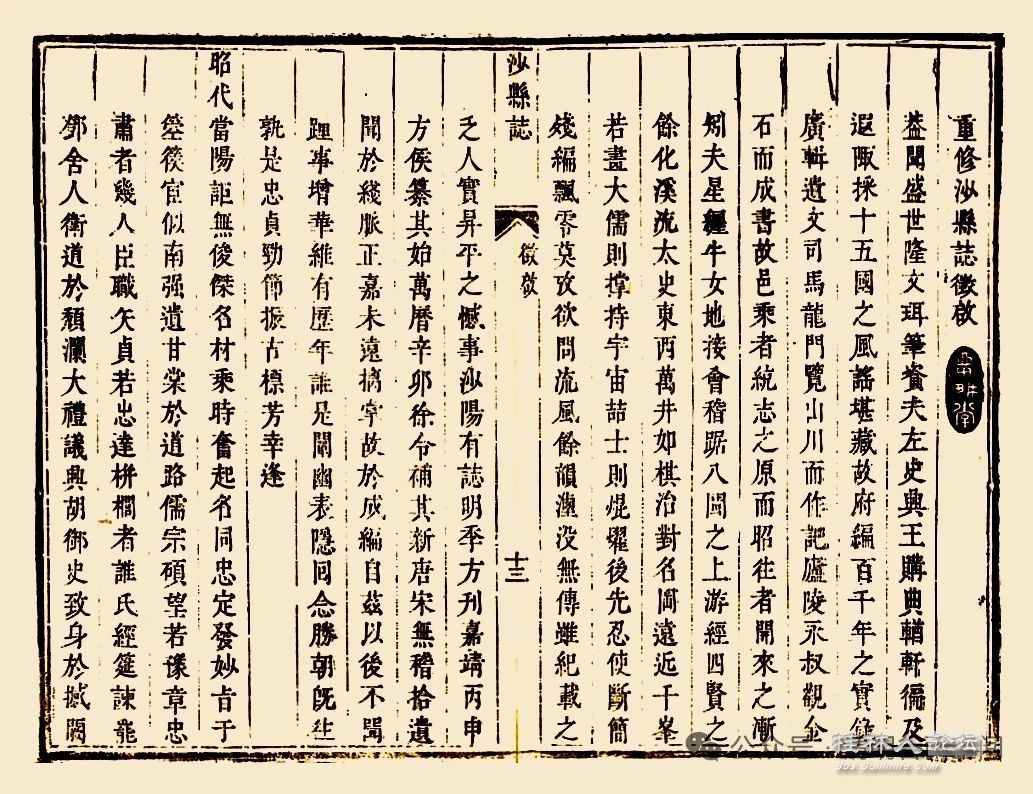 重修沙縣誌徵啟
蓋聞盛世隆文珥筆資夫左史興王購典輶軒徧及
遐陬採十五國之風謠堪藏故府編百千年之實錄
廣輯遺文司馬龍門覽山川而作記廬陵永叔觀金
石而成書故邑乘者統志之原而昭往者開來之漸
矧夫星纏牛女地接會稽踞八閩之上游經四賢之
餘化溪流太史東西萬井如棋治對名岡遠近千峯
若畫大儒則撐持宇宙喆士則焜燿後先忍使斷簡
殘編飄零莫攷欲問流風餘韻湮没無傳雖紀載之
沙縣誌 徵啟 十三
乏人實昇平之憾事沙陽有誌明季方刋嘉靖丙申
方侯纂其始萬曆辛卯徐令補其新唐宋無稽拾遺
聞於綫脈正嘉未遠摛掌故於成編自茲以後不聞
踵事增華維有歷年誰是闡幽表隱囘念勝朝旣往
孰是忠貞勁節振古標芳幸逢
昭代當陽詎無俊傑名材乘時奮起名同忠定發妙旨于
箜篌宦似南强遺甘棠於道路儒宗碩望若豫章忠
肅者幾人臣職矢貞若忠達栟櫚者誰氏經筵諫龍
鄧舍人衛道於頹瀾大禮議興胡御史致身於撼闕
公众号
桂林人论坛
bbs.Guilinlife.Com